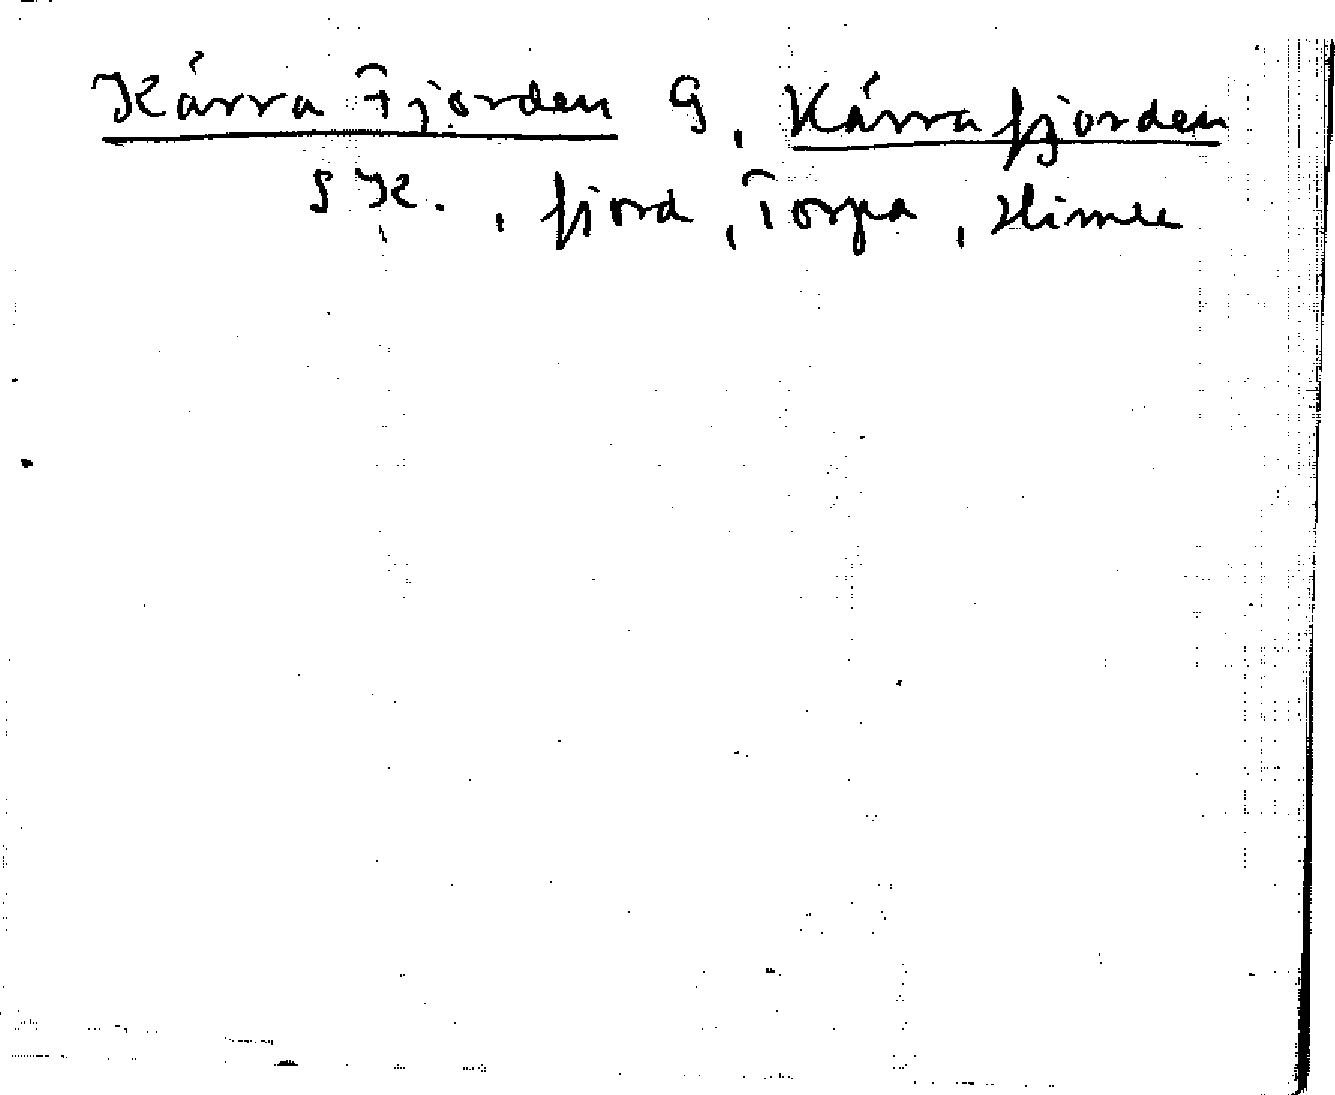 Kärra Fjorden G, Kärrafjorden
SK., fjord, Torpa, Himle